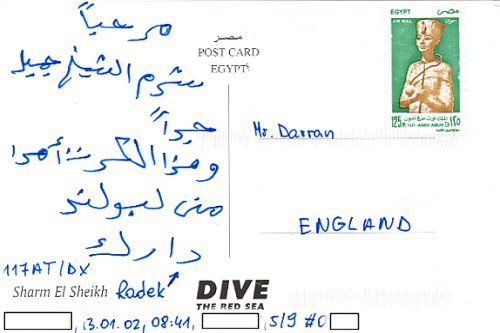 مرحباً
شرم الشيخ جميل
جداً
وهذا الكرت أهدا
من لبولندر
دارك
117AT/DX
Radek
Sharm El Sheikh
مصر
POST CARD
EGYPT
EGYPT مصر
AIR MAIL
125P.
١٢٥
TUT-ANKH AMUN
Mr. Darran
ENGLAND
DIVE
THE RED SEA
, 13.01.02, 08:41, , 5/9 #0